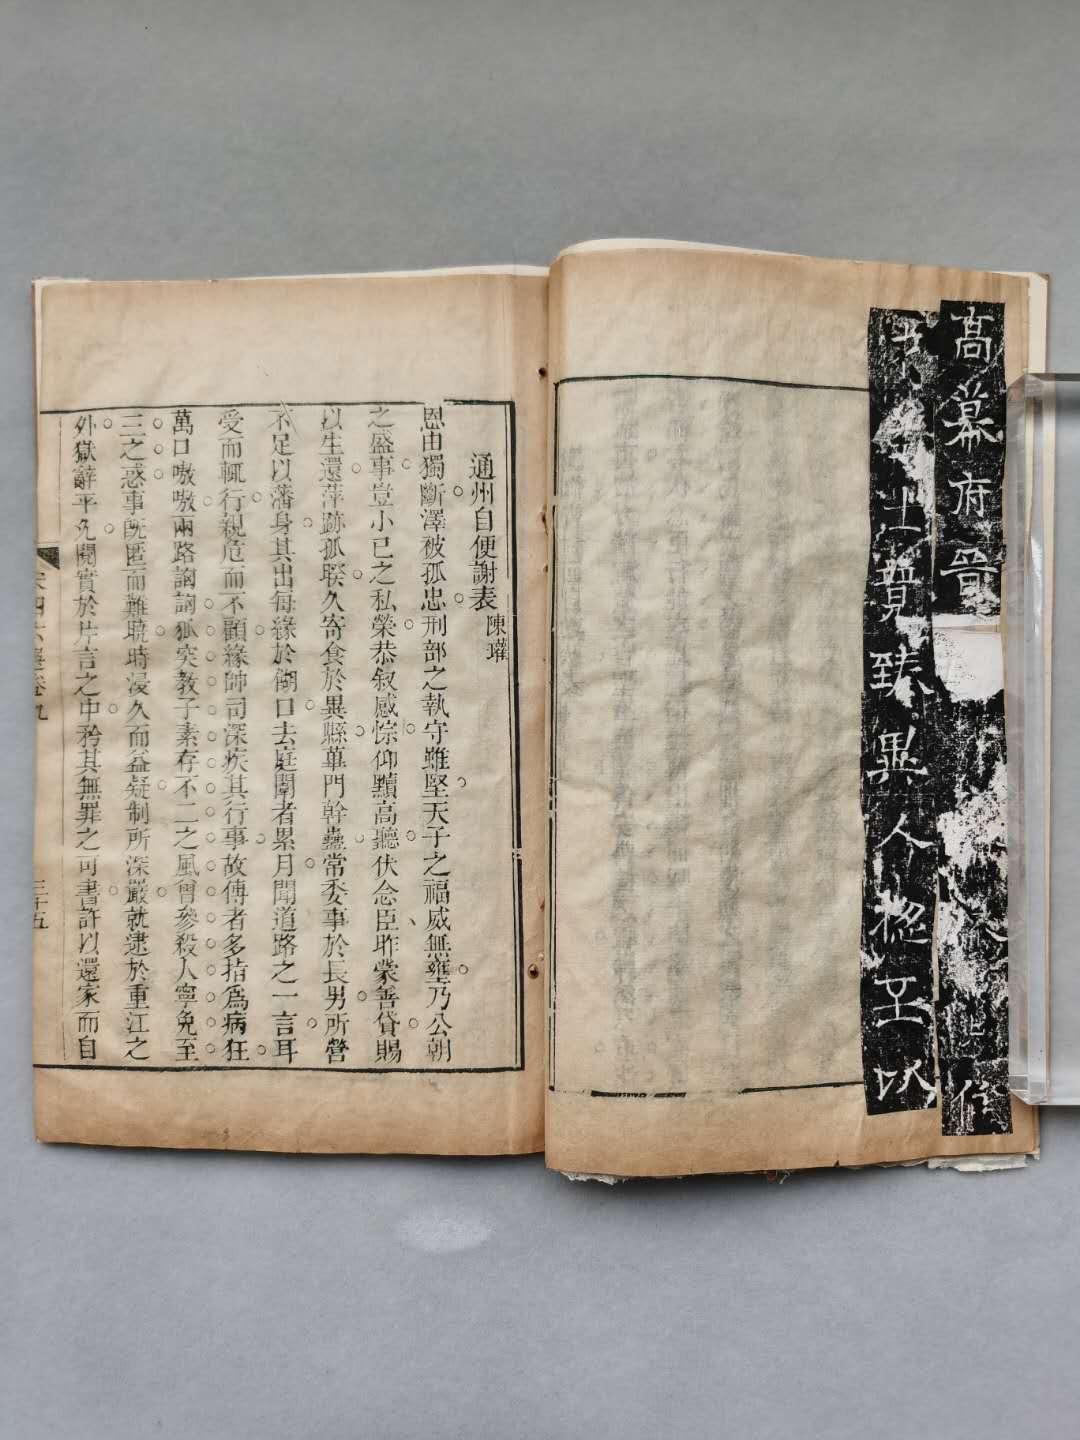 高幕府
臻異人揔至以
通州自便謝表 陳瓘
恩由獨斷澤被孤忠刑部之執守雖堅天子之福威無壅乃公朝
之盛事豈小己之私榮恭叙感悰仰黷高聽伏念臣昨蒙善貸賜
以生還萍跡孤睽久寄食於異縣蓽門幹蠱常委事於長男所營
不足以藩身其出每緣於餬口去庭闈者累月聞道路之一言耳
受而輒行親危而不顧緣帥司深疾其行事故傳者多指爲病狂
萬口嗷嗷兩路詾詾狐突教子素存不二之風曾參殺人寧免至
三之惑事既匿而難曉時浸久而益疑制所深嚴就逮於重江之
外獄辭平允閱實於片言之中矜其無罪之可書許以還家而自
卷九
三十五